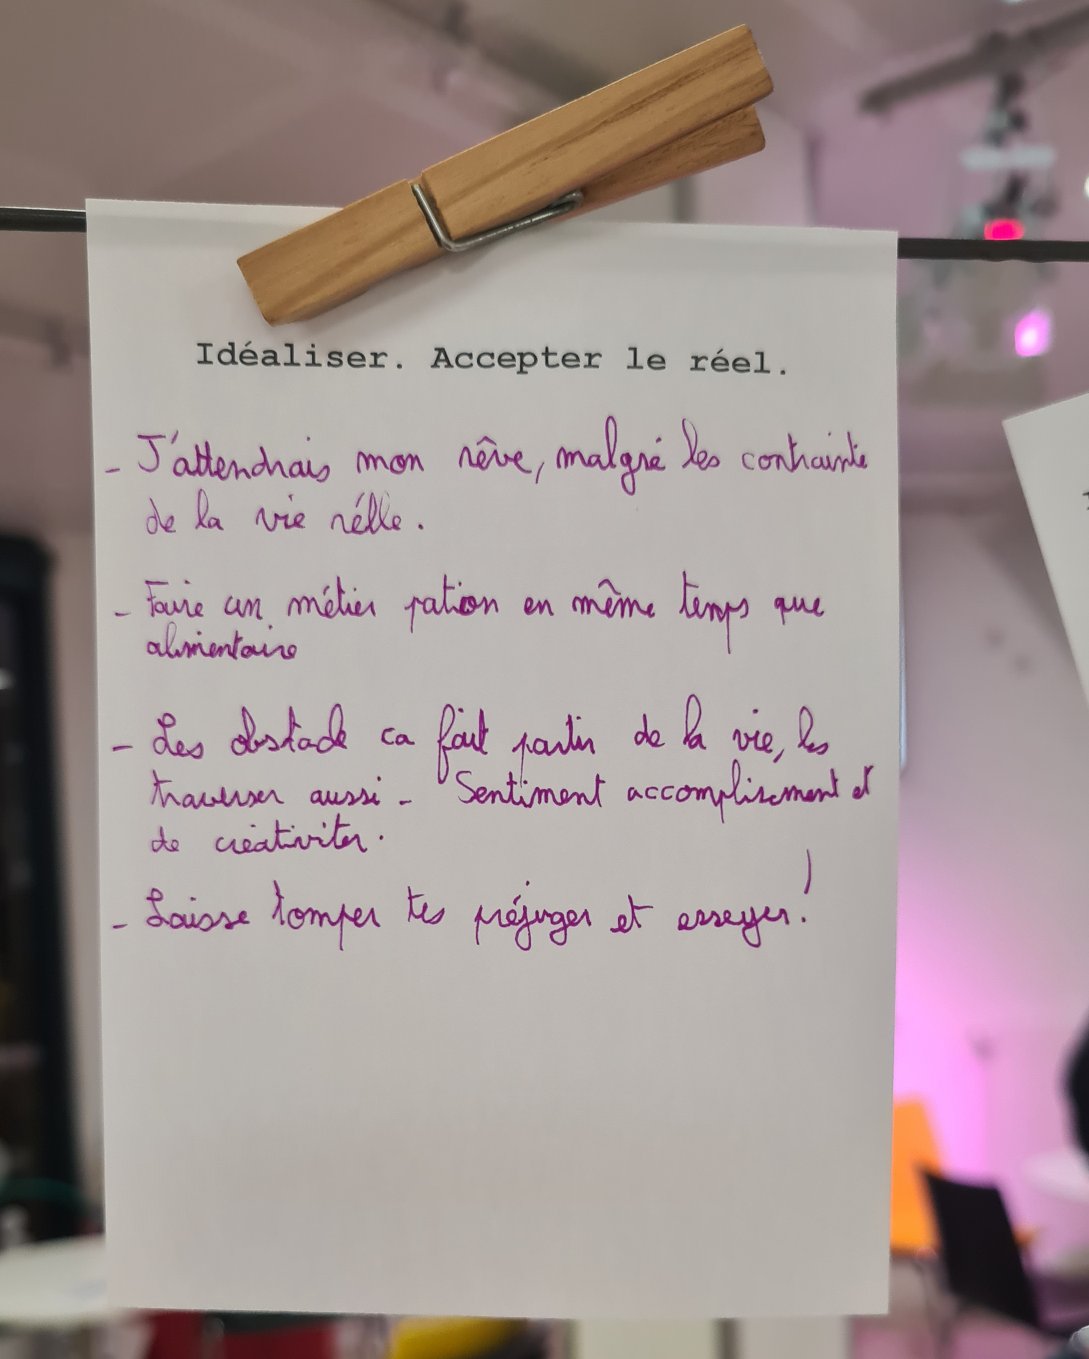 Idéaliser. Accepter le réel.
- J'attendrais mon rêve, malgré les contrainte
de la vie réelle.
- Faire un métier pation en même temps que
alimentaire
- Les obstacle ca fait partir de la vie, les
traverser aussi - Sentiment accomplisement et
de créativiter.
- Laisse tomper tes préjuger et esseyer!